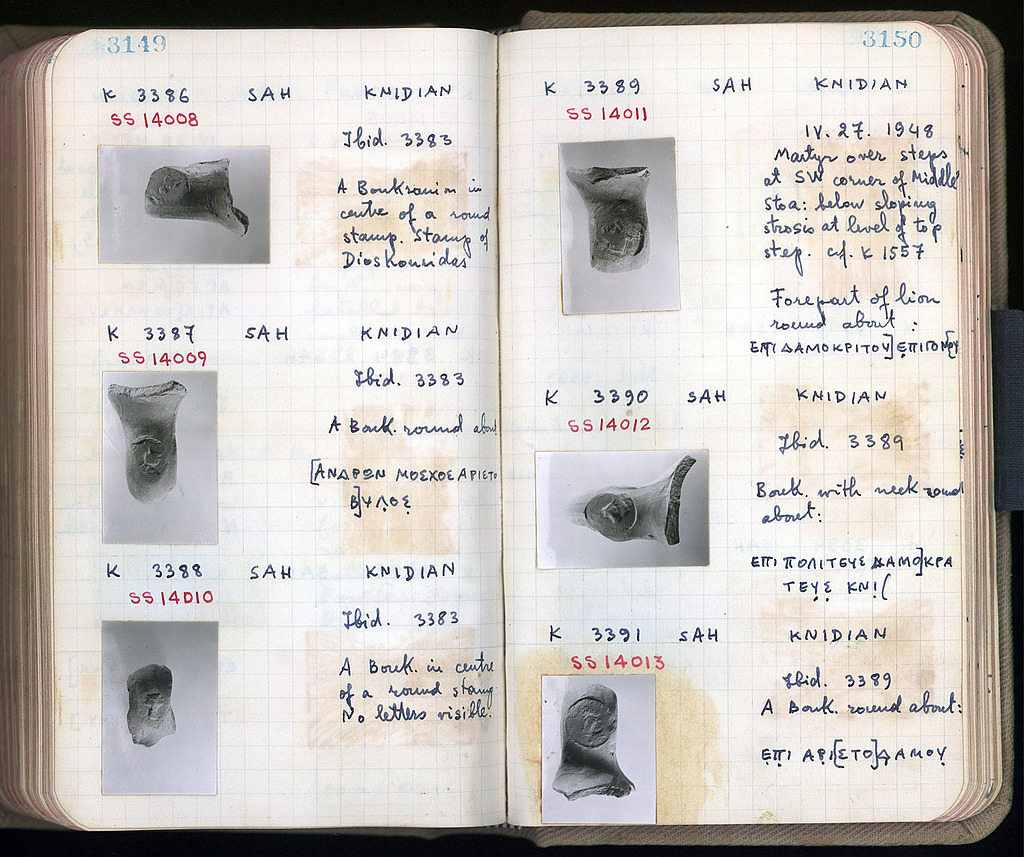 3149
K 3386 SAH KNIDIAN
SS 14008
Ibid. 3383
A Boukranion in
centre of a round
stamp. Stamp of
Dioskouridas
K 3387 SAH KNIDIAN
SS 14009
Ibid. 3383
A Bouk. round about
[ΑΝΔΡΩΝ ΜΟΣΧΟΣ ΑΡΙΣΤΟ
Β]ΥΛΟΣ
K 3388 SAH KNIDIAN
SS 14010
Ibid. 3383
A Bouk. in centre
of a round stamp
No letters visible.
3150
K 3389 SAH KNIDIAN
SS 14011
IV. 27. 1948
Martyr over steps
at SW corner of Middle
Stoa: below sloping
strosis at level of top
step. cf. K 1557
Forepart of lion
round about :
ΕΠΙ ΔΑΜΟΚΡΙΤΟΥ] ΕΠΙΓΟΝΟΥ
K 3390 SAH KNIDIAN
SS 14012
Ibid. 3389
Bouk. with neck round
about:
ΕΠΙ ΠΟΛΙΤΕΥΣ ΔΑΜΟ]ΚΡΑ
ΤΕΥΣ ΚΝΙ(
K 3391 SAH KNIDIAN
SS 14013
Ibid. 3389
A Bouk. round about:
ΕΠΙ ΑΡΙ[ΣΤΟ]ΔΑΜΟΥ